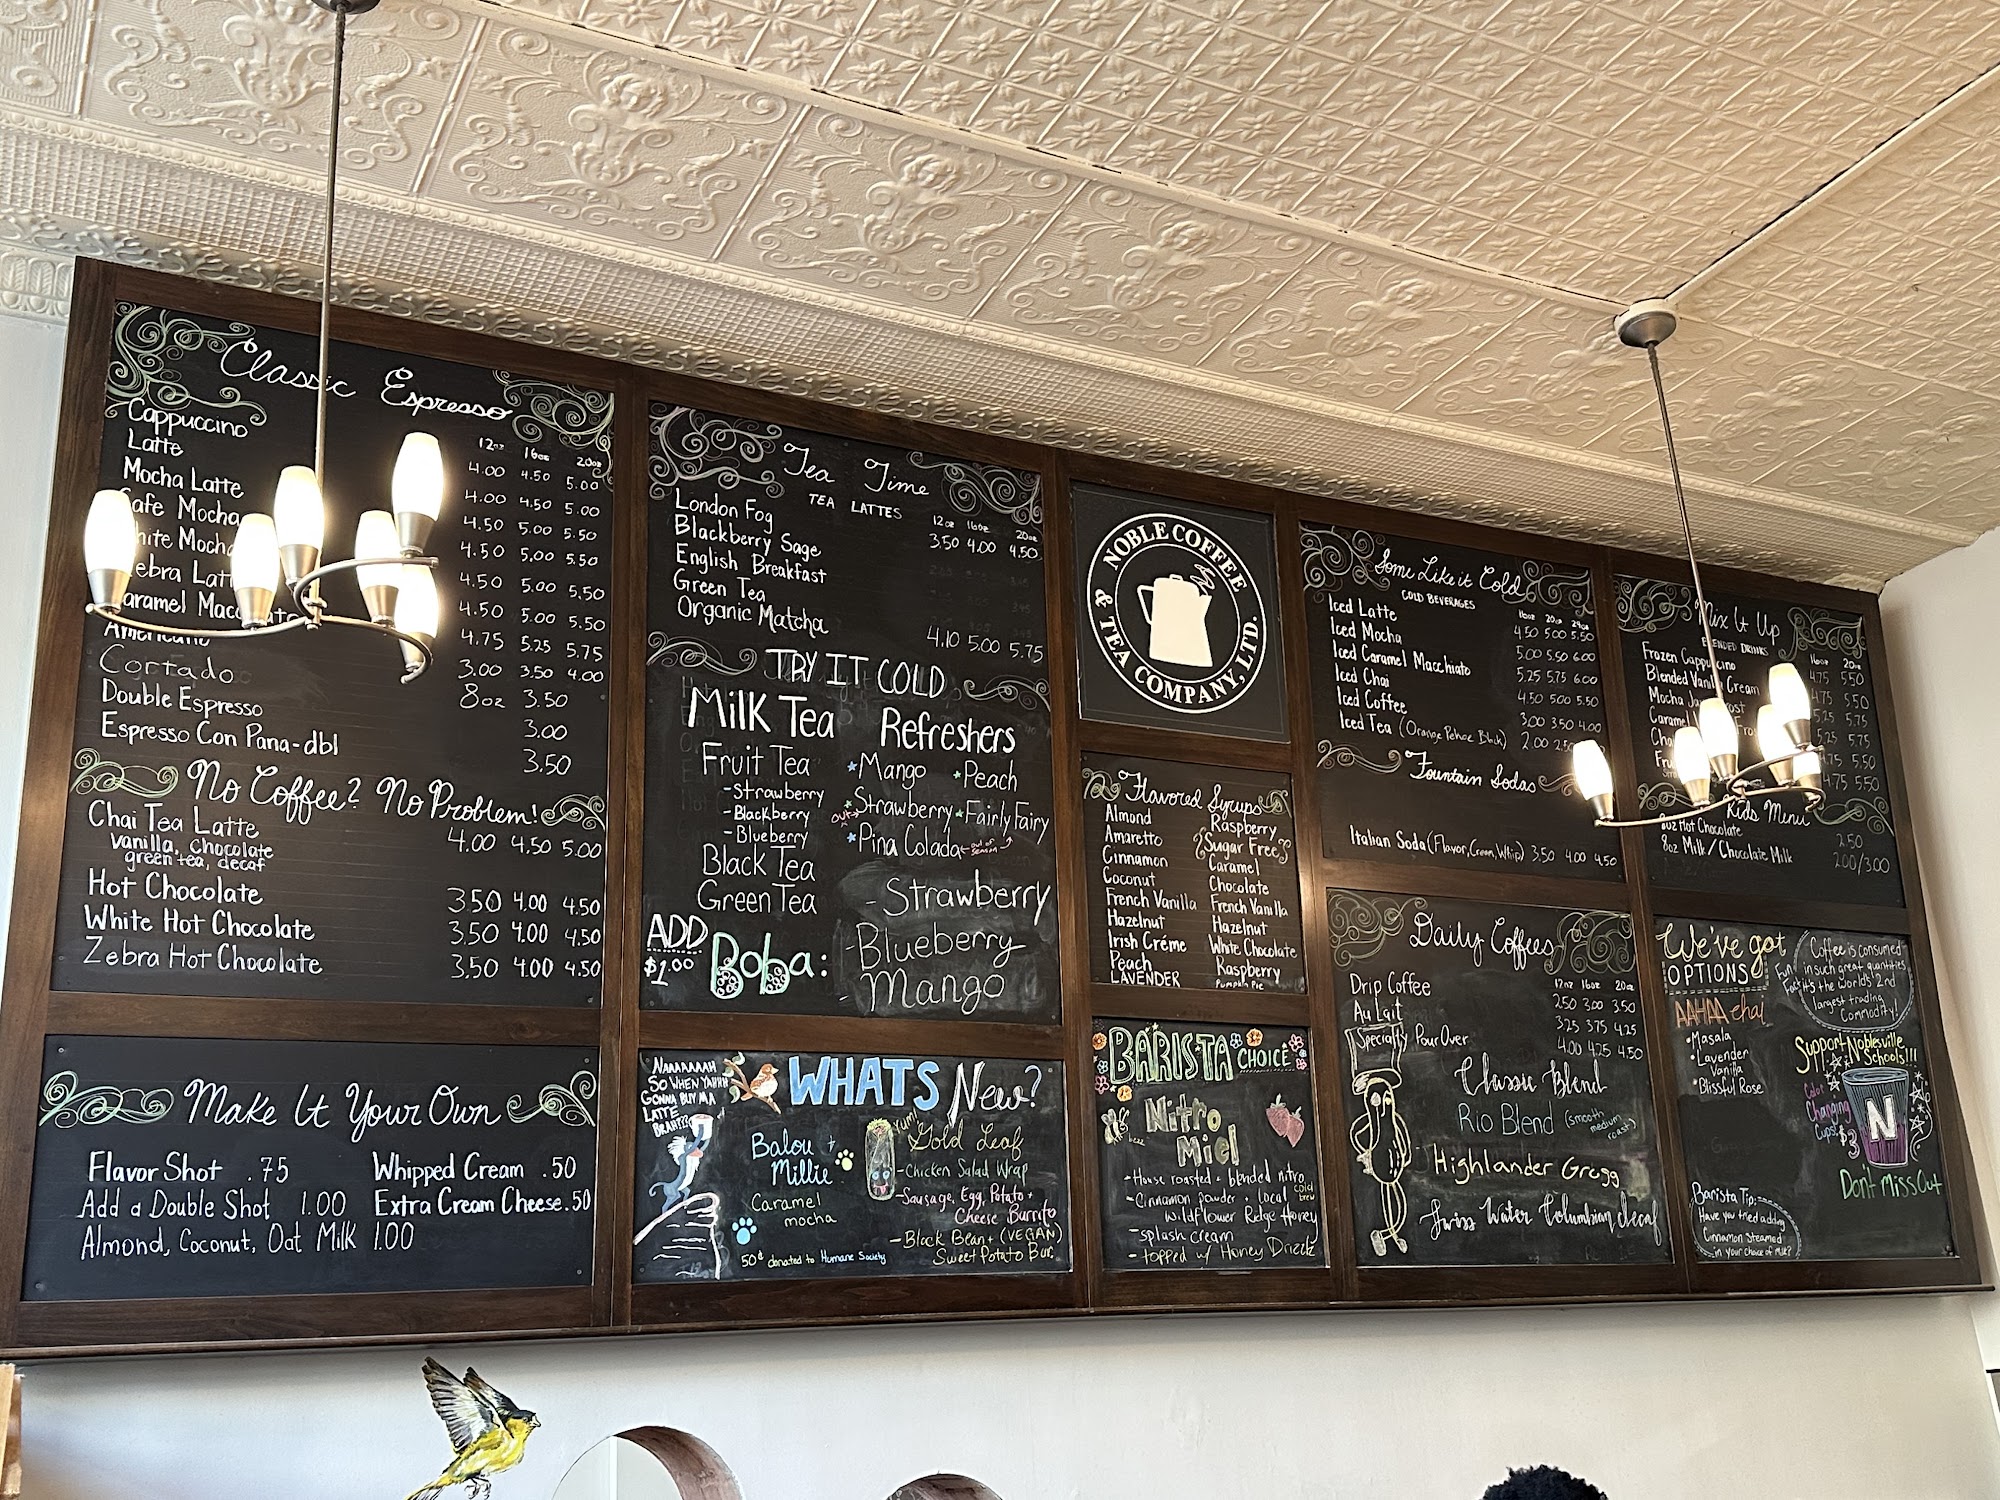 Classic Espresso
12oz 16oz 20oz
Cappuccino 4.00 4.50 5.00
Latte 4.00 4.50 5.00
Mocha Latte 4.50 5.00 5.50
Cafe Mocha 4.50 5.00 5.50
White Mocha 4.50 5.00 5.50
Zebra Latt 4.50 5.00 5.50
Caramel Macchiato 4.75 5.25 5.75
Americano 3.00 3.50 4.00
Cortado 8oz 3.50
Double Espresso 3.00
Espresso Con Pana-dbl 3.50
No Coffee? No Problem!
Chai Tea Latte 4.00 4.50 5.00
vanilla, chocolate
green tea, decaf
Hot Chocolate 3.50 4.00 4.50
White Hot Chocolate 3.50 4.00 4.50
Zebra Hot Chocolate 3.50 4.00 4.50
Make It Your Own
Flavor Shot .75 Whipped Cream .50
Add a Double Shot 1.00 Extra Cream Cheese .50
Almond, Coconut, Oat Milk 1.00
Tea Time
TEA LATTES
12oz 16oz 20oz
London Fog 3.50 4.00 4.50
Blackberry Sage
English Breakfast
Green Tea
Organic Matcha 4.10 5.00 5.75
TRY IT COLD
Milk Tea Refreshers
Fruit Tea *Mango *Peach
-Strawberry *Strawberry *Fairly Fairy
-Blackberry out *Pina Colada out of season
-Blueberry
Black Tea
Green Tea
ADD $1.00 Boba:
- Strawberry
- Blueberry
- Mango
NAAAAAAAH
SO WHEN YAHHH
GONNA BUY MA
LATTE
BRAH?!?
WHATS New?
Balou +
Millie
Caramel
mocha
50¢ donated to Humane Society
Yum!
Gold Leaf
-Chicken Salad Wrap
-Sausage, Egg, Potato +
Cheese Burrito
-Black Bean + (VEGAN)
Sweet Potato Bur.
NOBLE COFFEE
& TEA COMPANY, LTD.
Flavored Syrups
Almond
Amaretto
Cinnamon
Coconut
French Vanilla
Hazelnut
Irish Créme
Peach
LAVENDER
Raspberry
Sugar Free
Caramel
Chocolate
French Vanilla
Hazelnut
White Chocolate
Raspberry
Pumpkin Pie
BARISTA CHOICE
Nitro
Miel
-House roasted + blended nitro cold brew
-Cinnamon powder + local
Wildflower Ridge Honey
-splash cream
-topped w/ Honey Drizzle
Some Like it Cold
COLD BEVERAGES
16oz 20oz 24oz
Iced Latte 4.50 5.00 5.50
Iced Mocha 5.00 5.50 6.00
Iced Caramel Macchiato 5.25 5.75 6.00
Iced Chai 4.50 5.00 5.50
Iced Coffee 3.00 3.50 4.00
Iced Tea (Orange Pekoe Black) 2.00 2.50
Fountain Sodas
Italian Soda (Flavor, Cream, Whip) 3.50 4.00 4.50
Daily Coffees
12oz 16oz 20oz
Drip Coffee 2.50 3.00 3.50
Au Lait 3.25 3.75 4.25
Specialty Pour Over 4.00 4.25 4.50
Classic Blend
Rio Blend (smooth medium roast)
Highlander Grogg
Swiss Water Columbian decaf
Mix It Up
BLENDED DRINKS
16oz 20oz
Frozen Cappuccino 4.75 5.50
Blended Vanilla Cream 4.75 5.50
Mocha Ja 5.25 5.75
Caramel 5.25 5.75
4.75 5.50
4.75 5.50
Kids Menu
8oz Hot Chocolate 2.50
8oz Milk/Chocolate Milk 2.00/3.00
We've got
OPTIONS
AAHAA chai
•Masala
•Lavender
Vanilla
•Blissful Rose
Fun Fact
Coffee is consumed
in such great quantities
it's the world's 2nd
largest trading
Commodity!
Support Noblesville
Schools!!!
Color
Changing
Cups!
$3
N
Don't Miss Out
Barista Tip:
Have you tried adding
Cinnamon Steamed
in your choice of milk?